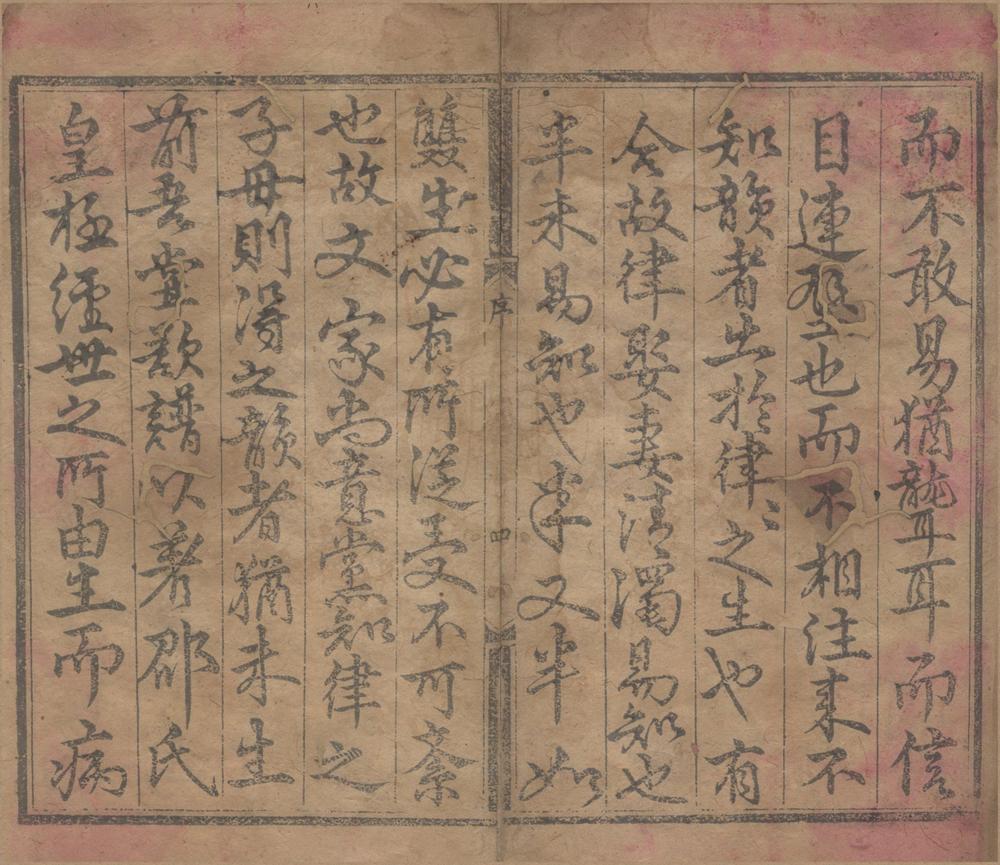 而不敢易猶聾耳而信
目連壁也而不相往来不
知韻者出於律〻之生也有
合故律娶妻清濁易知也
半未易知也半又半如
序
四
雙生必有所從受不可紊
也故文家尚意黨知律之
子母則得之韻者猶未生
前吾嘗歎譜以著邵氏
皇極經世之所由生而病